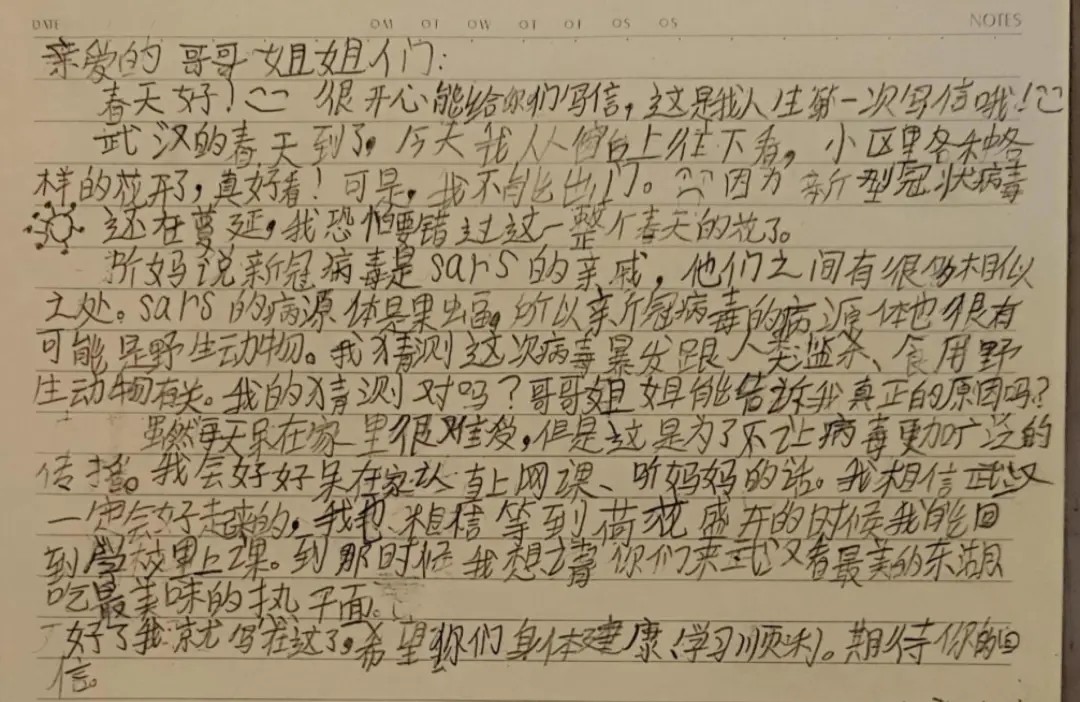 DATE OM OT OW OT OF OS OS NOTES
亲爱的哥哥姐姐们:
春天好! 很开心能给你们写信,这是我人生第一次写信哦!
武汉的春天到了,今天我从窗台上往下看,小区里各种各
样的花开了,真好看!可是,我不能出门。因为新型冠状病毒
还在蔓延,我恐怕要错过这一整个春天的花了。
听妈说新冠病毒是sars的亲戚,他们之间有很多相似
之处。sars的病源体是果蝠,所以亲新冠病毒的病源体也很有
可能是野生动物。我猜测这次病毒暴发跟人类滥杀、食用野
生动物有关。我的猜测对吗?哥哥姐姐能告诉我真正的原因吗?
虽然每天呆在家里很难受,但是这是为了不让病毒更加广泛的
传播。我会好好呆在家认真上网课、听妈妈的话。我相信武汉
一定会好起来的,我也相信等到荷花盛开的时候我能回
到学校里上课。到那时候我想请你们来武汉看最美的东湖
吃最美味的热干面。
好了我就写在这了,希望你们身体健康、学习顺利。期待你的回
信。